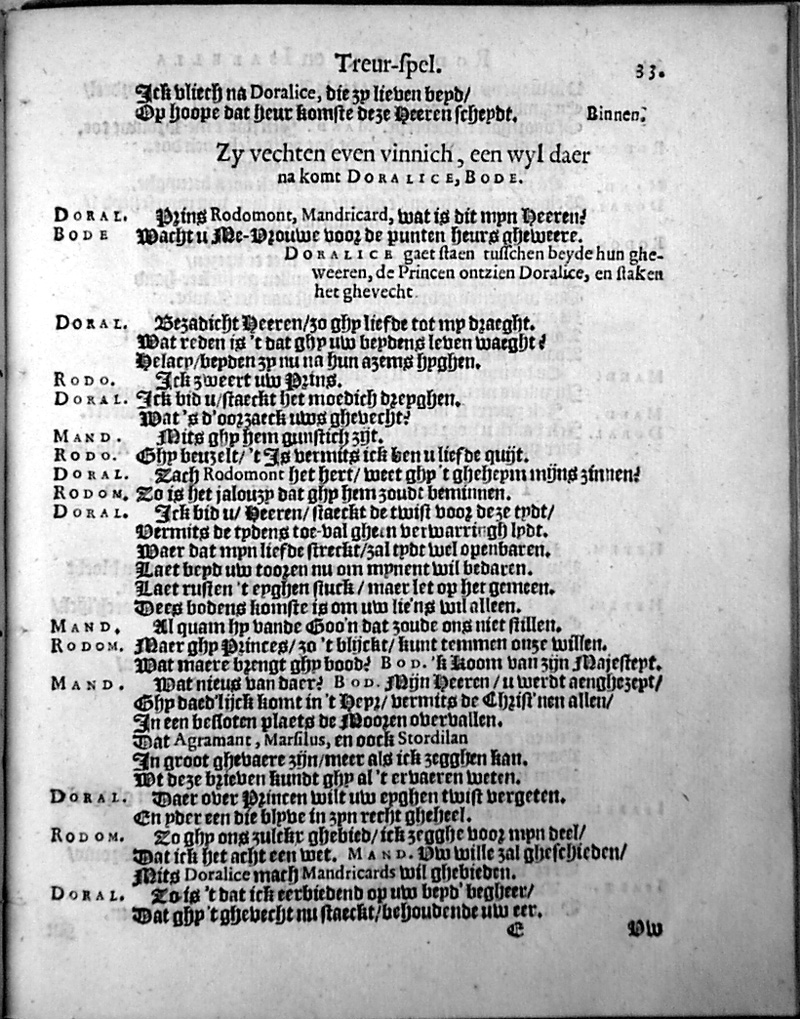 Treur-spel. 33.
Ick vliech na Doralice, die zy lieven beyd/
Op hoope dat heur komste deze Heeren scheydt. Binnen.
Zy vechten even vinnich, een wyl daer
na komt DORALICE, BODE.
DORAL. Prins Rodomont, Mandricard, wat is dit mijn Heeren?
BODE Wacht u Me-Vrouwe voor de punten heurs gheweere.
DORALICE gaet staen tusschen beyde hun ghe-
weeren, de Princen ontzien Doralice, en staken
het ghevecht.
DORAL. Bezadicht Heeren/zo ghy liefde tot my draeght.
Wat reden is 't dat ghy uw beydens leven waeght?
Helacy/beyden zy nu na hun azems hyghen.
RODO. Ick zweert uw Prins.
DORAL. Ick bid u/staeckt het moedich dreyghen.
Wat 's d'oorzaeck uws ghevecht?
MAND. Mits ghy hem gunstich zijt.
RODO. Ghy beuzelt/ 't Is vermits ick ben u liefde quijt.
DORAL. Zach Rodomont het hert/ weet ghy 't gheheym mijns zinnen?
RODOM. Zo is het jalouzy dat ghy hem zoudt beminnen.
DORAL. Ick bid u/ Heeren/ staeckt de twist voor deze tydt/
Vermits de tydens toe-val gheen verwarringh lydt.
Waer dat myn liefde streckt/zal tydt wel openbaren.
Laet beyd uw tooren nu om mynent wil bedaren.
Laet rusten 't eyghen stuck/ maer let op het gemeen.
Dees bodens komste is om uw lie'ns wil alleen.
MAND. Al quam hy vande Goo'n dat zoude ons niet stillen.
RODOM. Maer ghy Princes/ zo 't blijckt/ kunt temmen onze willen.
Wat maere brengt ghy bood? BOD. 'k Koom van zijn Majesteyt.
MAND. Wat nieus van daer? BOD. Mijn Heeren/ u werdt aenghezeyt/
Ghy daed'lijck komt in 't Heyr/ vermits de Christ'nen allen/
In een besloten plaets de Mooren overvallen.
Dat Agramant, Marsilus, en oock Stordilan
In groot ghevaere zijn/meer als ick zegghen kan.
Wt deze brieven kundt ghy al 't ervaeren weten.
DORAL. Daer over Princen wilt uw eyghen twist vergeten.
En yder een die blyve in zyn recht gheheel.
RODOM. Zo ghy ons zulckx ghebied/ ick zegghe voor myn deel/
Dat ick het acht een wet. MAND. Uw wille zal gheschieden/
Mits Doralice mach Mandricards wil ghebieden.
DORAL. Zo is 't dat ick eerbiedend op uw beyd' begheer/
Dat ghy 't ghevecht nu staeckt/behoudende uw eer.
E Uw